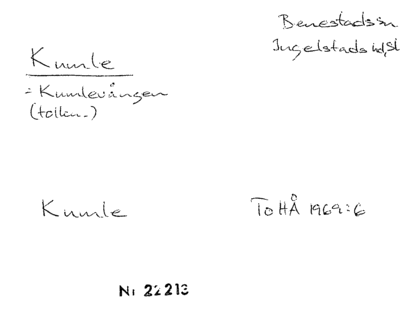 Benestads sn
Ingelstads hd, Sk
Kumle
= Kumlevången
(tolkn.)
Kumle
ToHÅ 1969:6
Nr 22213